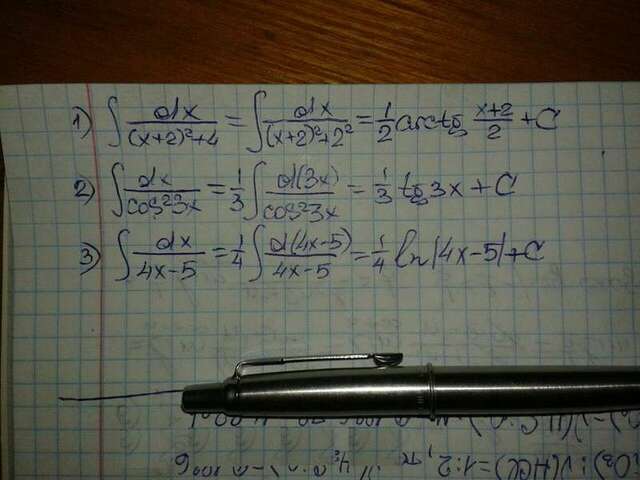 1) ∫ dx/((x+2)²+4) = ∫ dx/((x+2)²+2²) = 1/2 arctg (x+2)/2 + C
2) ∫ dx/cos²3x = 1/3 ∫ d(3x)/cos²3x = 1/3 tg 3x + C
3) ∫ dx/(4x-5) = 1/4 ∫ d(4x-5)/(4x-5) = 1/4 ln|4x-5| + C